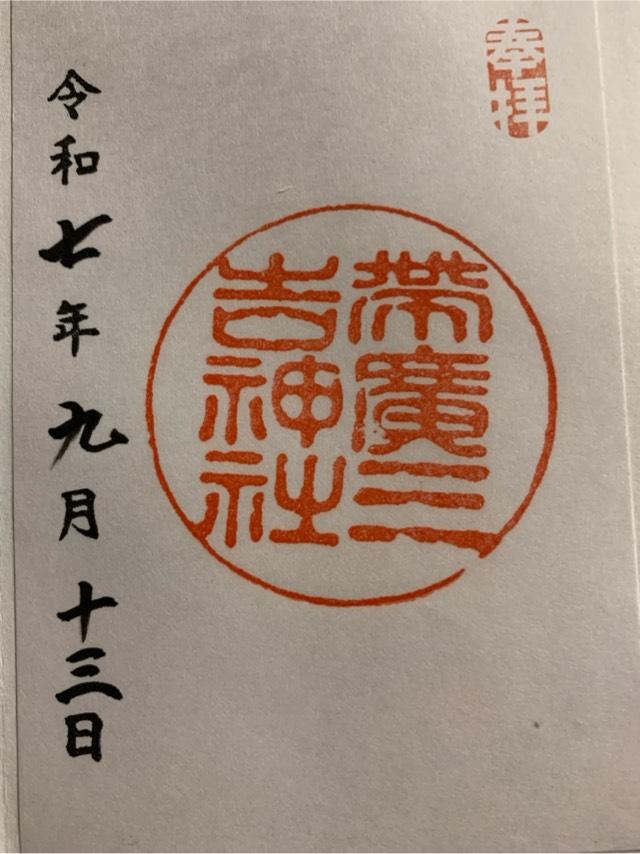 奉拝
帯廣三
吉神社
令和七年九月十三日